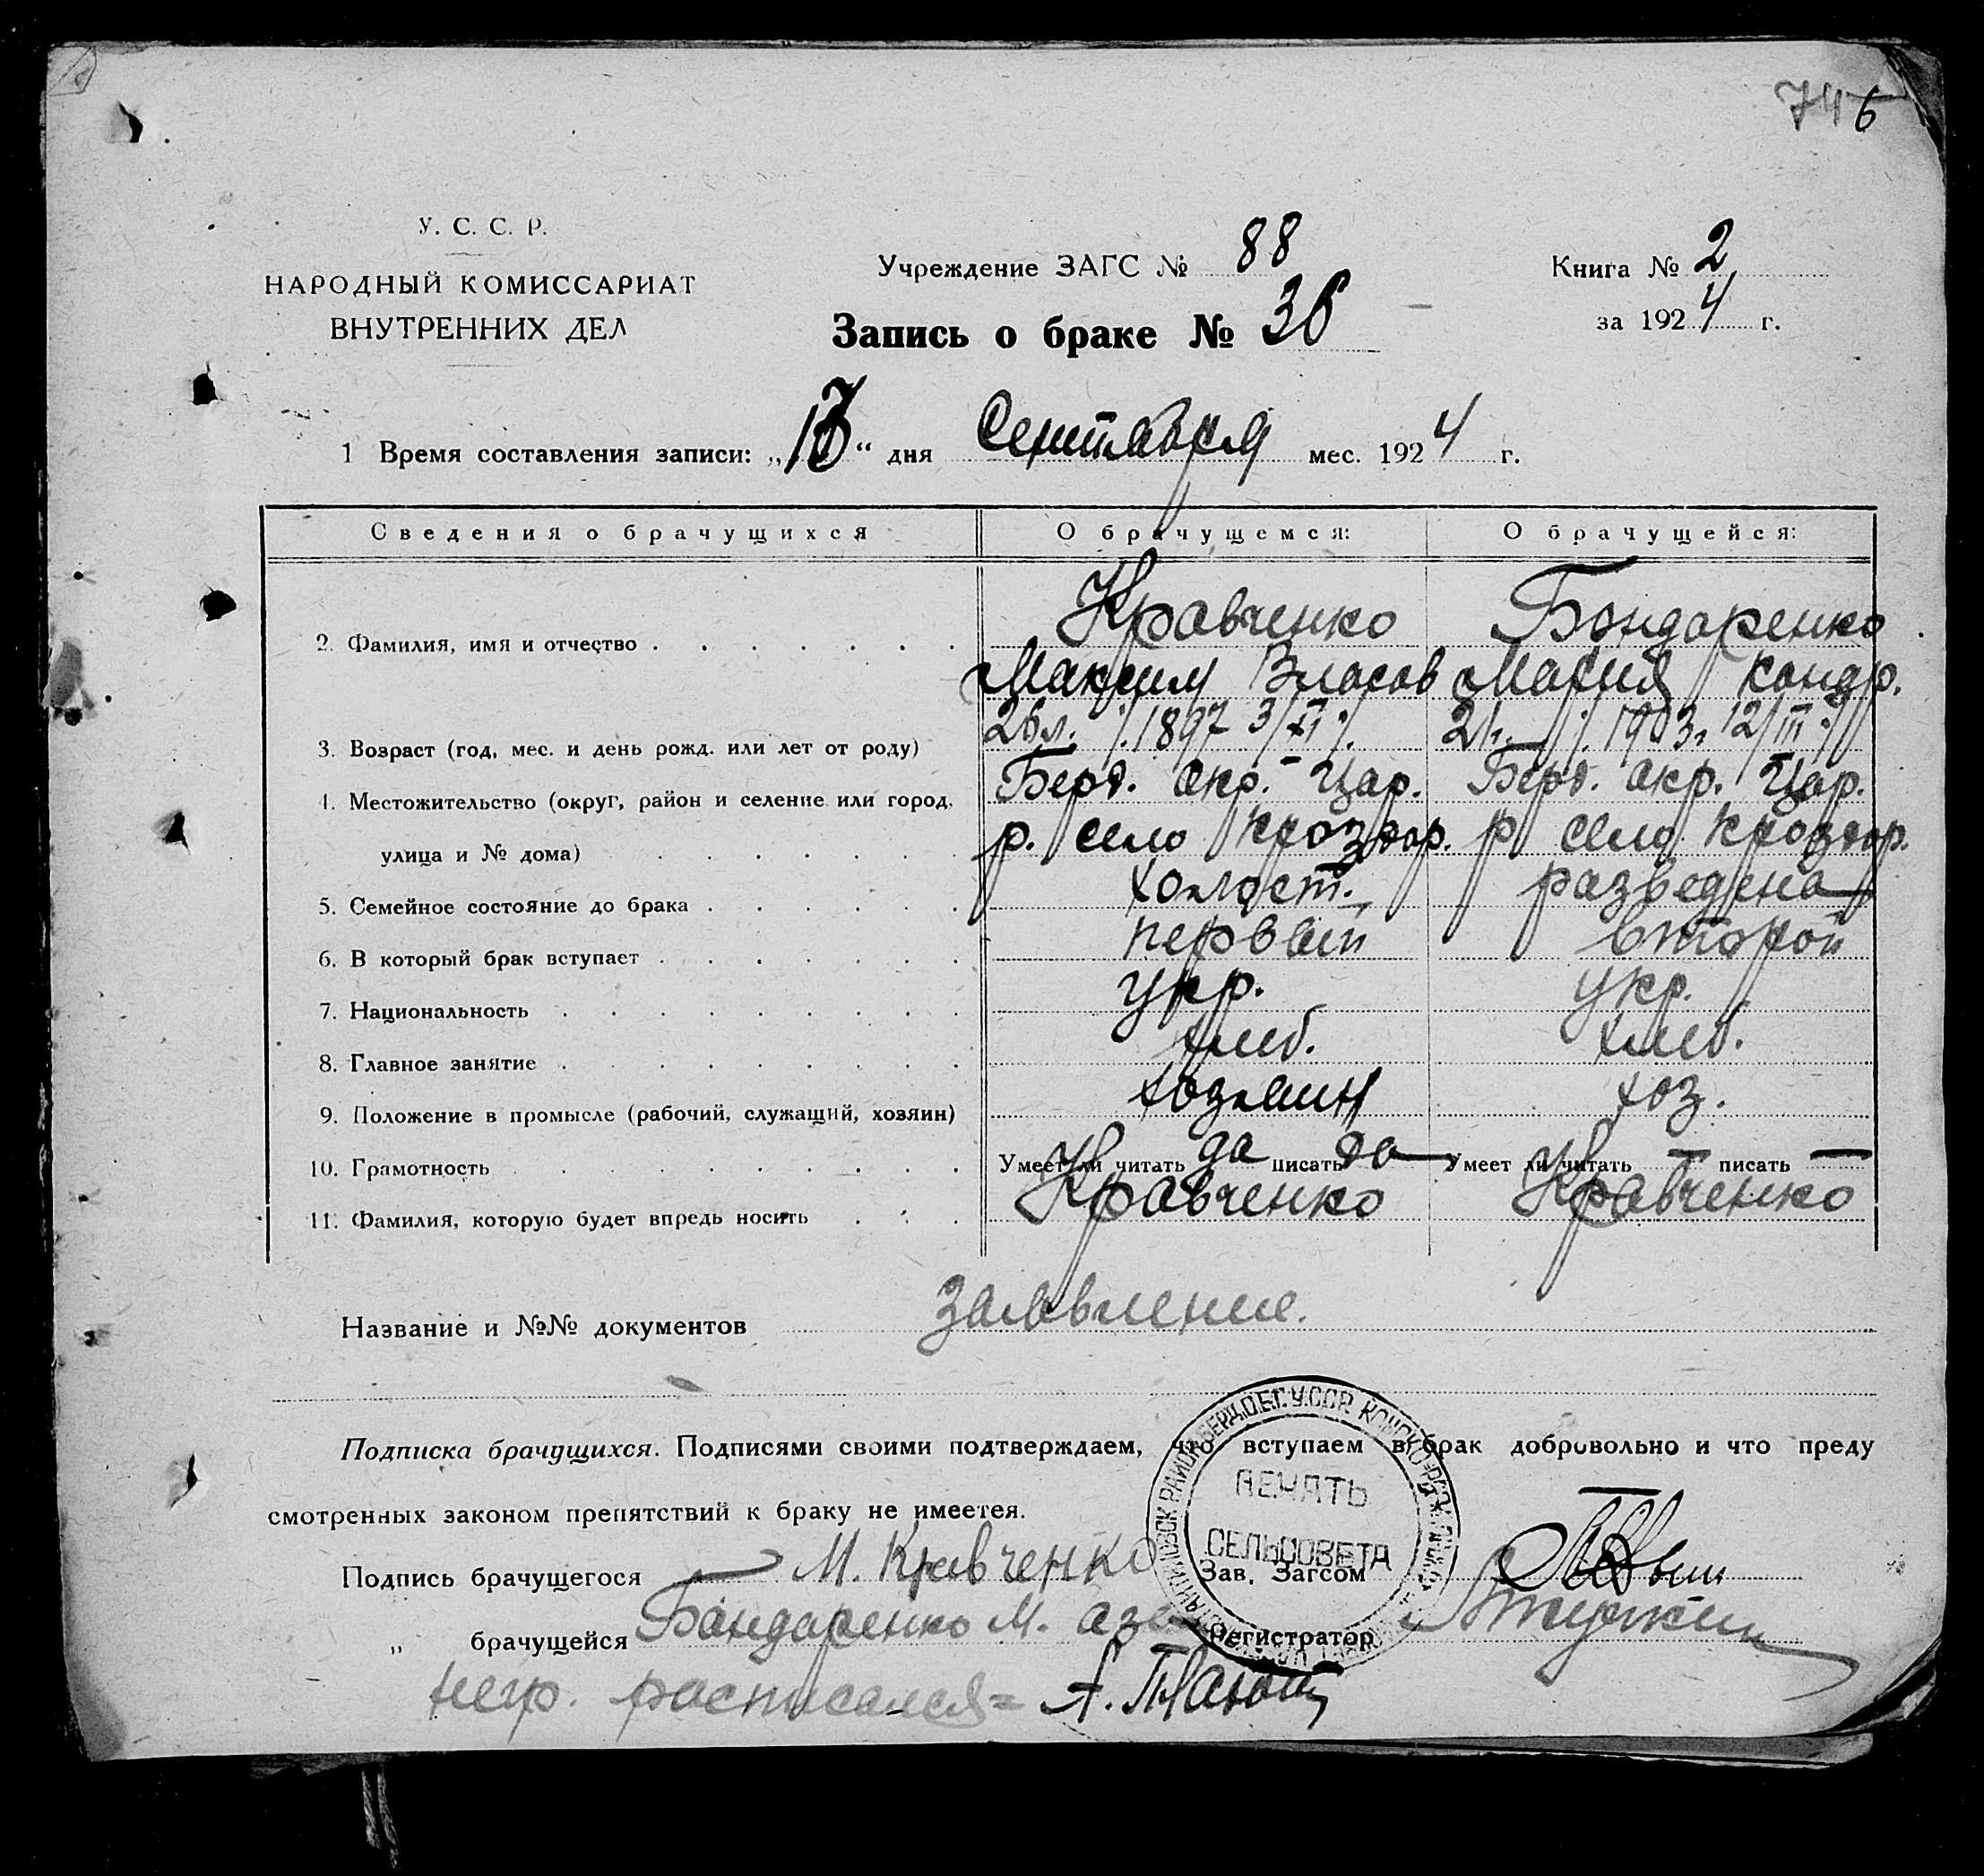 6
У. С. С. Р.
НАРОДНЫЙ КОМИССАРИАТ
ВНУТРЕННИХ ДЕЛ
Учреждение ЗАГС № 88
Книга № 2
Запись о браке № 36
за 1924 г.
1 Время составления записи: „ “ дня Сентября мес. 1924 г.
Сведения о брачущихся О брачущемся: О брачущейся:
2. Фамилия, имя и отчество Кравченко Бондаренко
Максим Власов Мария Кондр.
3. Возраст (год, мес. и день рожд. или лет от роду) 26 л. 1897 3/XI 21 1903 12/III
4. Местожительство (округ, район и селение или город, Берд. окр. Цар. Берд. окр. Цар.
улица и № дома) р. село р село
5. Семейное состояние до брака холост. разведена
6. В который брак вступает первый второй
7. Национальность укр. укр.
8. Главное занятие хлеб. хлеб.
9. Положение в промысле (рабочий, служащий, хозяин) хозяин хоз.
10. Грамотность Умеет ли читать да писать да Умеет ли читать — писать —
11. Фамилия, которую будет впредь носить Кравченко Кравченко
Название и №№ документов заявление.
Подписка брачущихся. Подписями своими подтверждаем, что вступаем в брак добровольно и что преду
смотренных законом препятствий к браку не имеетея.
ПЕЧАТЬ
СЕЛЬСОВЕТА
Подпись брачущегося М. Кравченко Зав. Загсом
„ брачущейся Бондаренко М. Регистратор
негр. расписался =